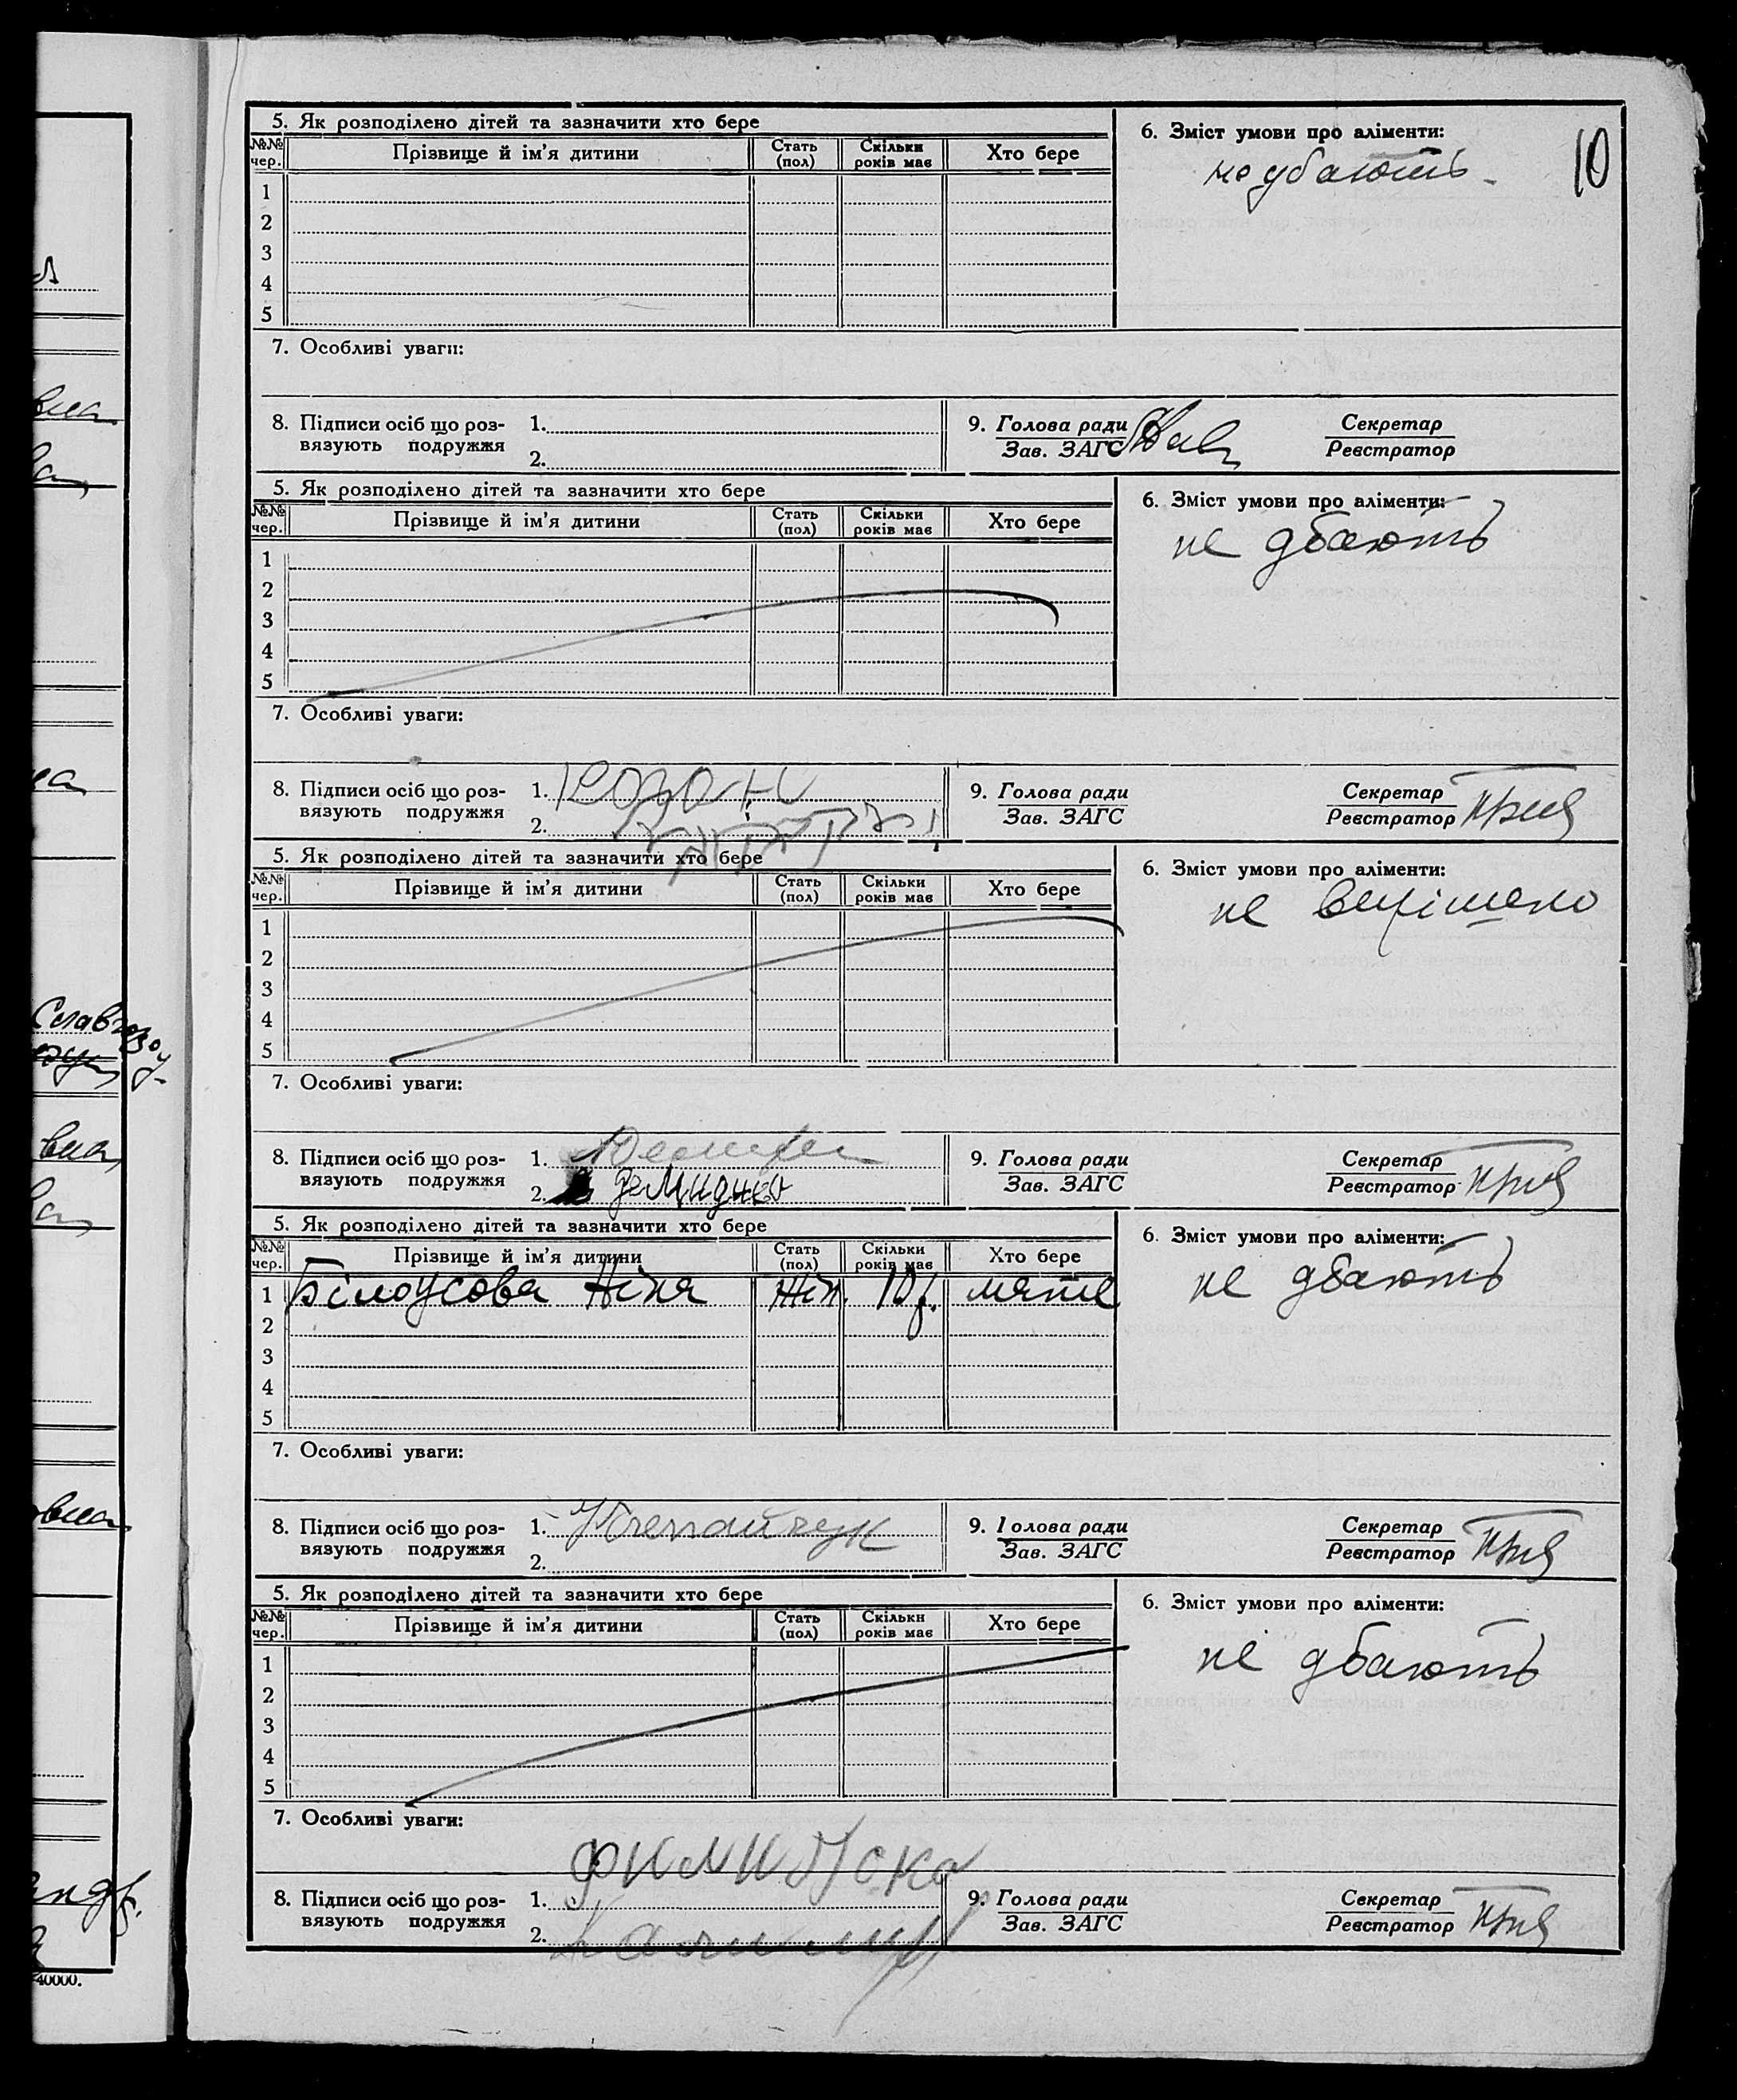 10
5. Як розподілено дітей та зазначити хто бере
6. Зміст умови про аліменти:
№№ чер. Прізвище й ім'я дитини Стать (пол) Скільки років має Хто бере
не дбають
1
2
3
4
5
7. Особливі уваги:
8. Підписи осіб що розвязують подружжя
1.
2.
9. Голова ради
Зав. ЗАГС
Секретар
Реєстратор
5. Як розподілено дітей та зазначити хто бере
6. Зміст умови про аліменти:
№№ чер. Прізвище й ім'я дитини Стать (пол) Скільки років має Хто бере
не дбають
1
2
3
4
5
7. Особливі уваги:
8. Підписи осіб що розвязують подружжя
1.
2.
9. Голова ради
Зав. ЗАГС
Секретар
Реєстратор
5. Як розподілено дітей та зазначити хто бере
6. Зміст умови про аліменти:
№№ чер. Прізвище й ім'я дитини Стать (пол) Скільки років має Хто бере
не вирішено
1
2
3
4
5
7. Особливі уваги:
8. Підписи осіб що розвязують подружжя
1.
2. демиденко
9. Голова ради
Зав. ЗАГС
Секретар
Реєстратор
5. Як розподілено дітей та зазначити хто бере
6. Зміст умови про аліменти:
№№ чер. Прізвище й ім'я дитини Стать (пол) Скільки років має Хто бере
1 Білоусова Ніна жін. 10 р. мати
не дбають
2
3
4
5
7. Особливі уваги:
8. Підписи осіб що розвязують подружжя
1.
2.
9. Голова ради
Зав. ЗАГС
Секретар
Реєстратор
5. Як розподілено дітей та зазначити хто бере
6. Зміст умови про аліменти:
№№ чер. Прізвище й ім'я дитини Стать (пол) Скільки років має Хто бере
не дбають
1
2
3
4
5
7. Особливі уваги:
8. Підписи осіб що розвязують подружжя
1.
2.
9. Голова ради
Зав. ЗАГС
Секретар
Реєстратор
40000.